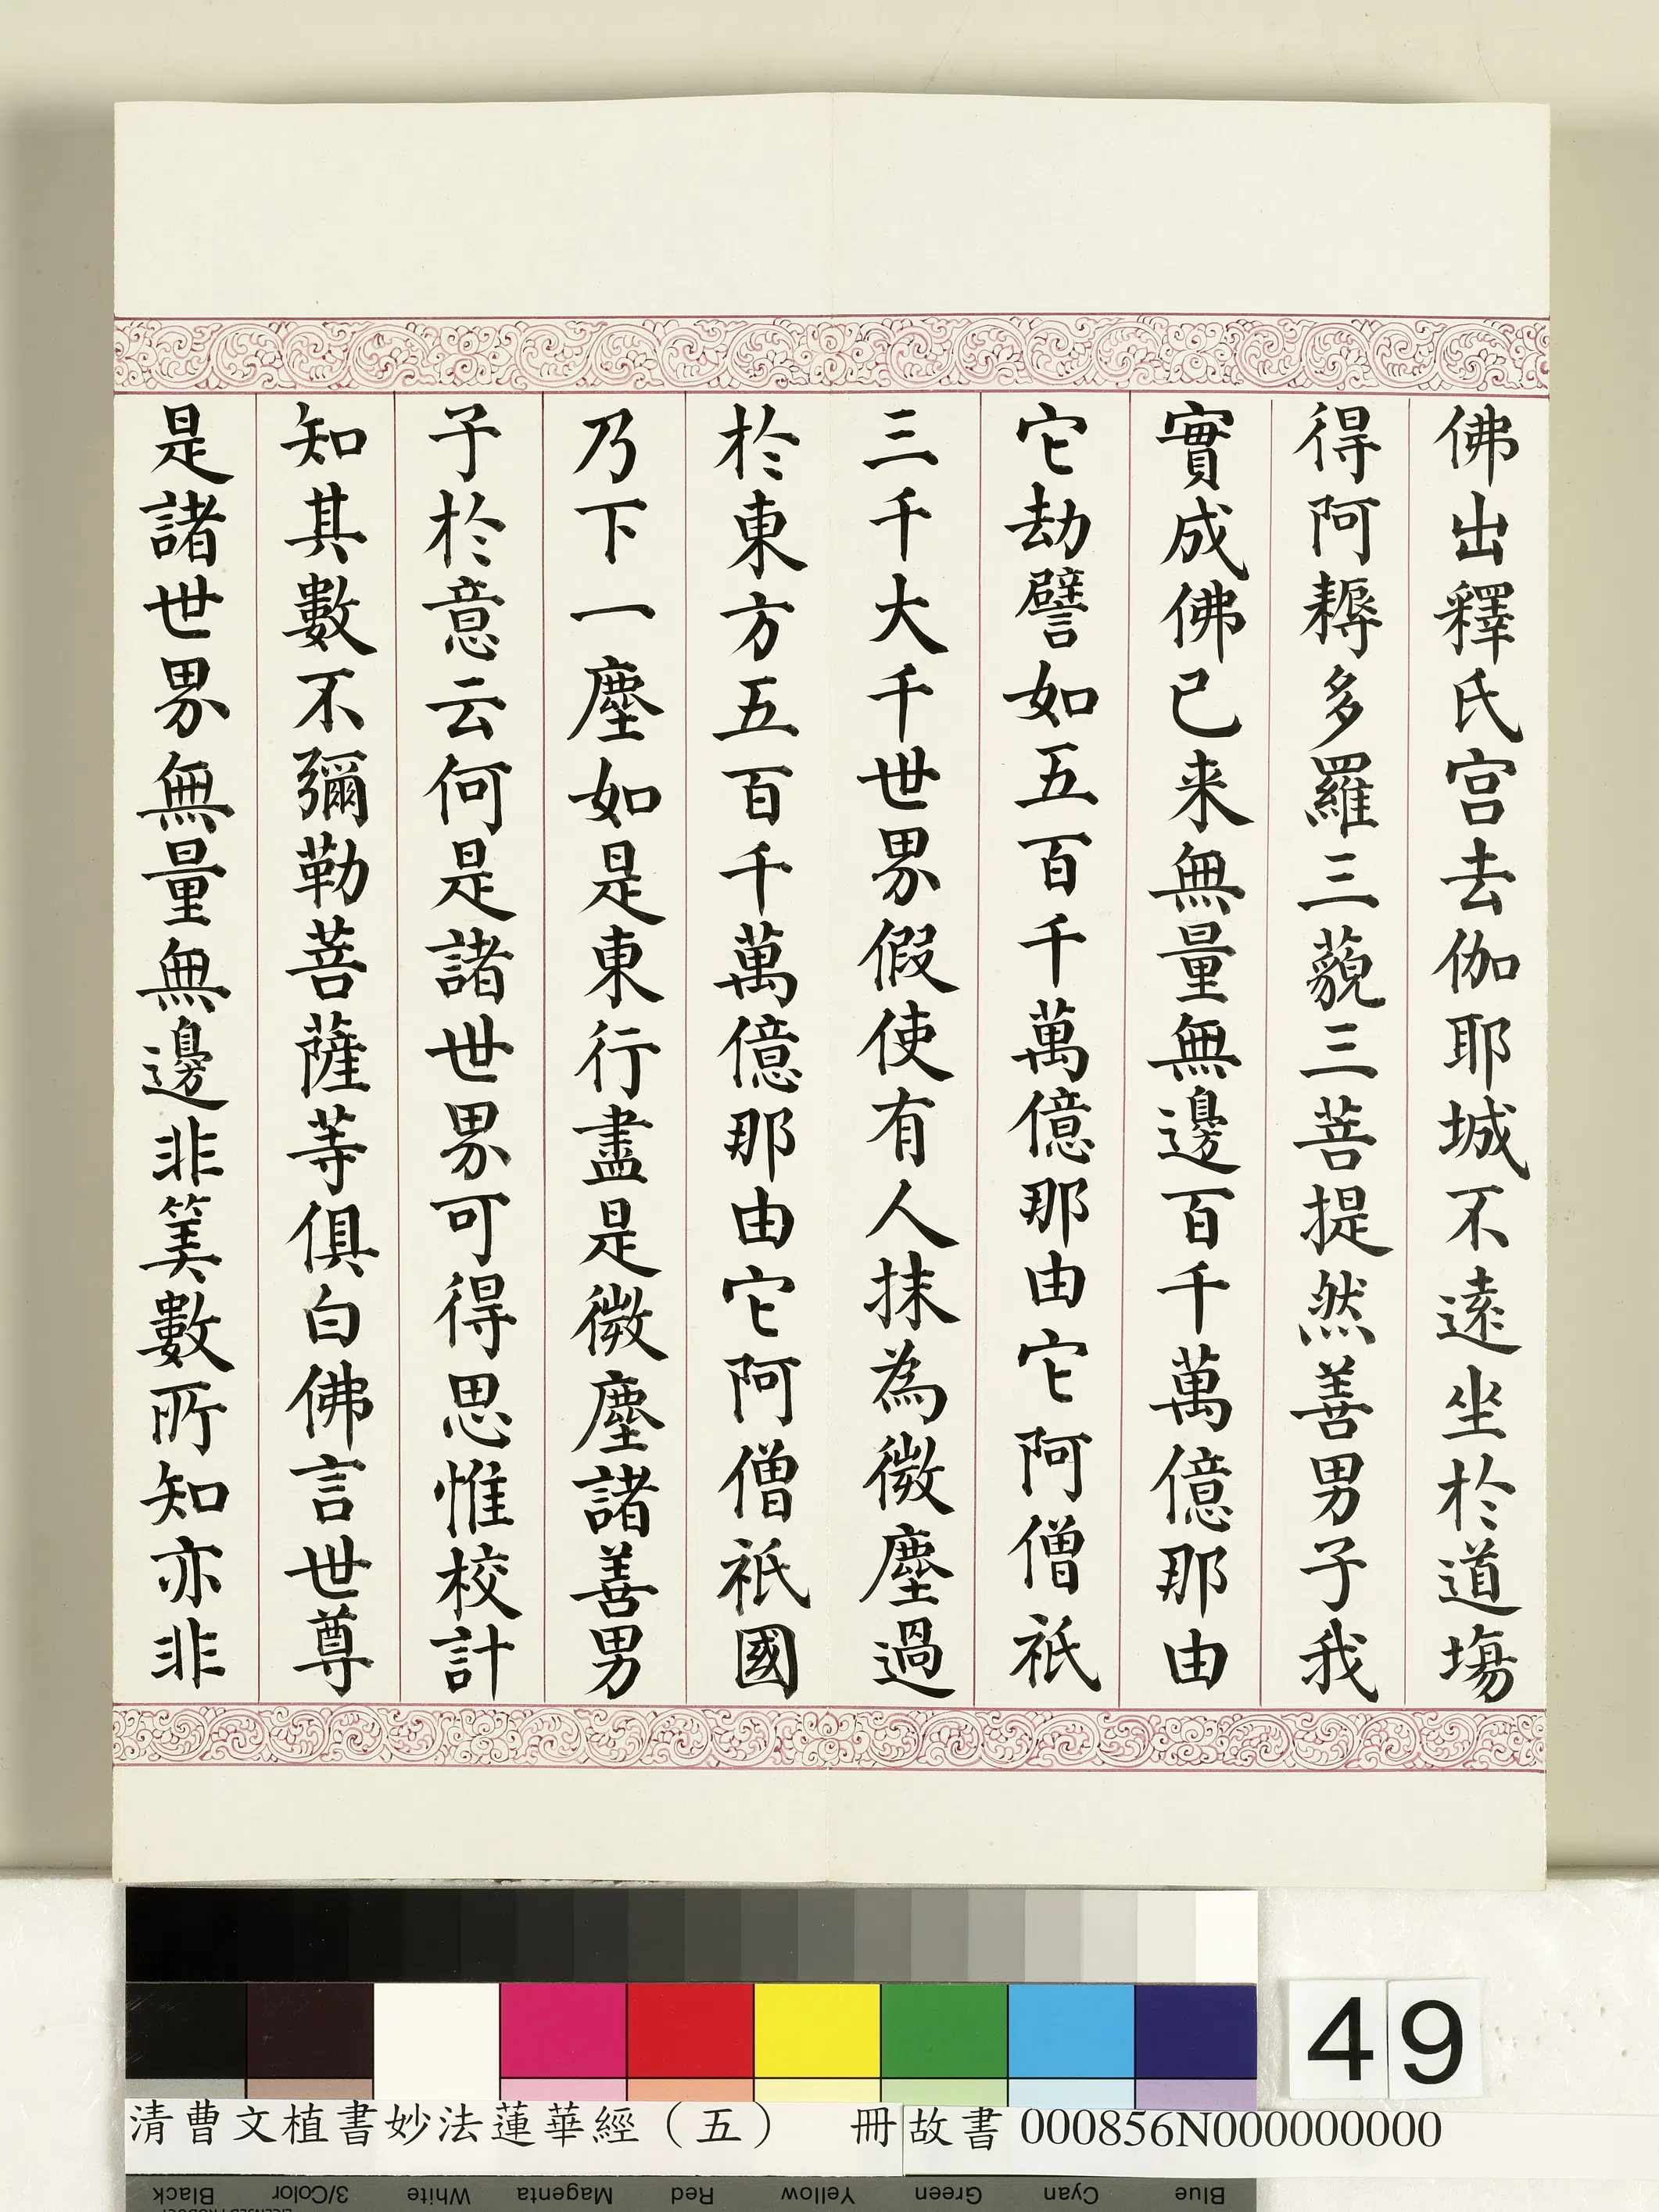 佛出釋氏宮去伽耶城不遠坐於道場
得阿耨多羅三藐三菩提然善男子我
實成佛已来無量無邊百千萬億那由
它劫譬如五百千萬億那由它阿僧祇
三千大千世界假使有人抹為微塵過
於東方五百千萬億那由它阿僧祇國
乃下一塵如是東行盡是微塵諸善男
子於意云何是諸世界可得思惟校計
知其數不彌勒菩薩等俱白佛言世尊
是諸世界無量無邊非筭數所知亦非
49
清曹文植書妙法蓮華經（五） 冊 故書 000856N000000000
Black 3/Color White Magenta Red Yellow Green Cyan Blue